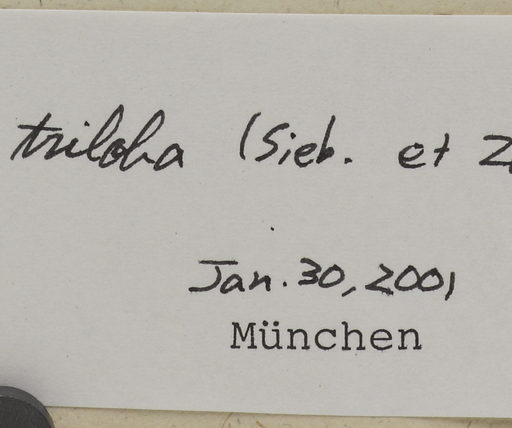 triloba (Sieb. et Z
Jan. 30, 2001
München